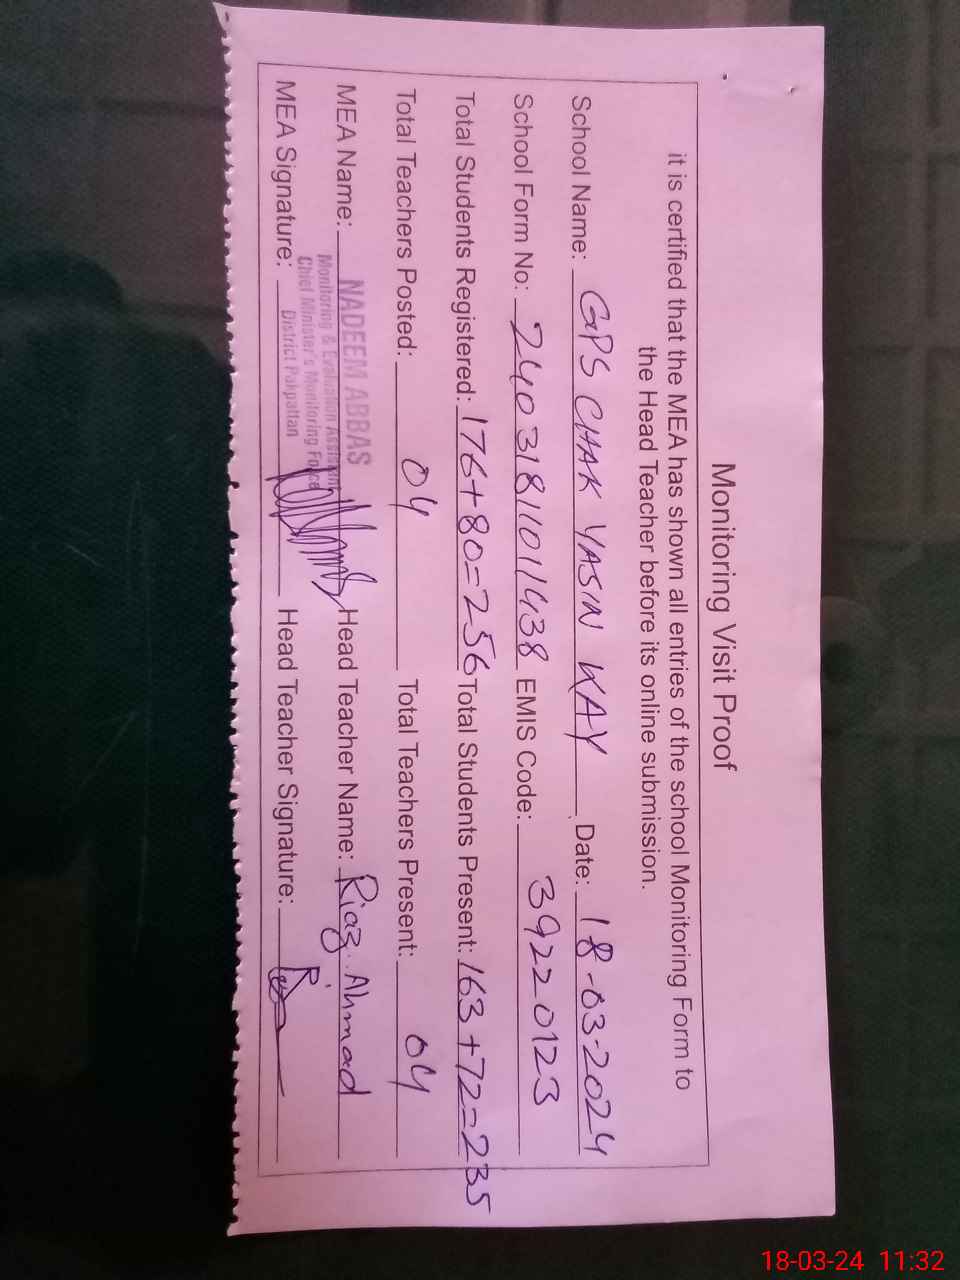 Monitoring Visit Proof
it is certified that the MEA has shown all entries of the school Monitoring Form to
the Head Teacher before its online submission.
School Name: GPS CHAK YASIN KAY Date: 18-03-2024
School Form No: 24031811011438 EMIS Code: 39220123
Total Students Registered: 176+80=256 Total Students Present: 163+72=235
Total Teachers Posted: 04 Total Teachers Present: 04
MEA Name: NADEEM ABBAS Head Teacher Name: Riaz Ahmad
Monitoring & Evaluation Assistant
Chief Minister's Monitoring Force
District Pakpattan
MEA Signature: Head Teacher Signature:
18-03-24 11:32